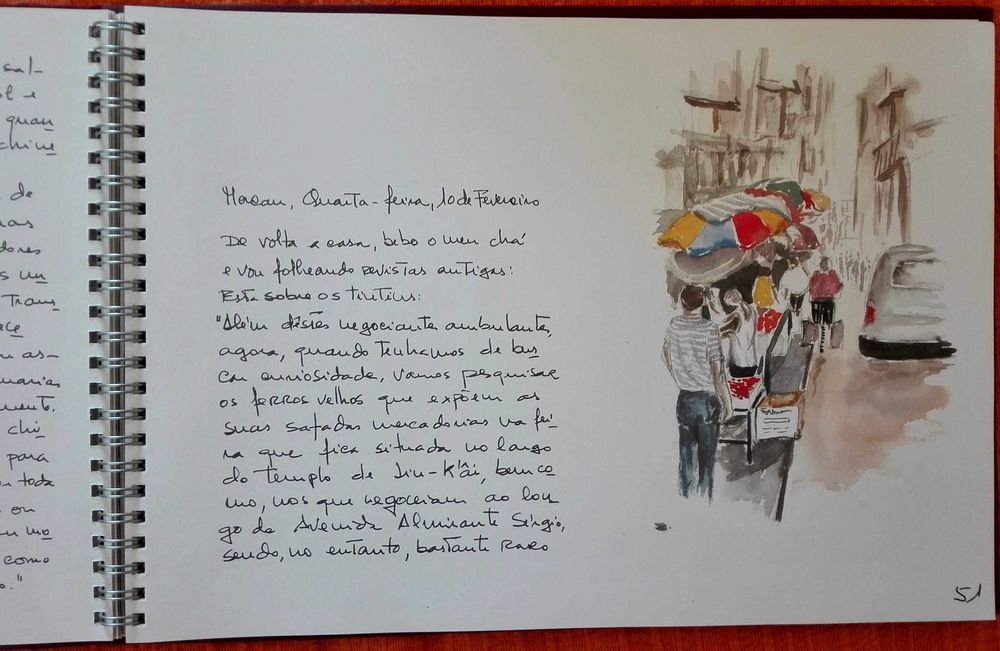 sal-
ol e
quan
chine
de
nas
dores
s un
Trans
ece
m as-
uarias
mento.
chi
para
toda
ou
m mo
como
o."
Macau, Quarta-feira, 10 de Fevereiro
De volta a casa, bebo o meu chá
e vou folheando revistas antigas:
Esta sobre os tintins:
"Além dêstes negociantes ambulantes,
agora, quando tenhamos de bus
car curiosidade, vamos pesquisar
os ferros velhos que expõem as
suas safadas mercadorias na fei
ra que fica situada no largo
do templo de Lin-K'âi, bem co
mo, nos que negoceiam ao lon
go da Avenida Almirante Sérgio,
sendo, no entanto, bastante raro
51